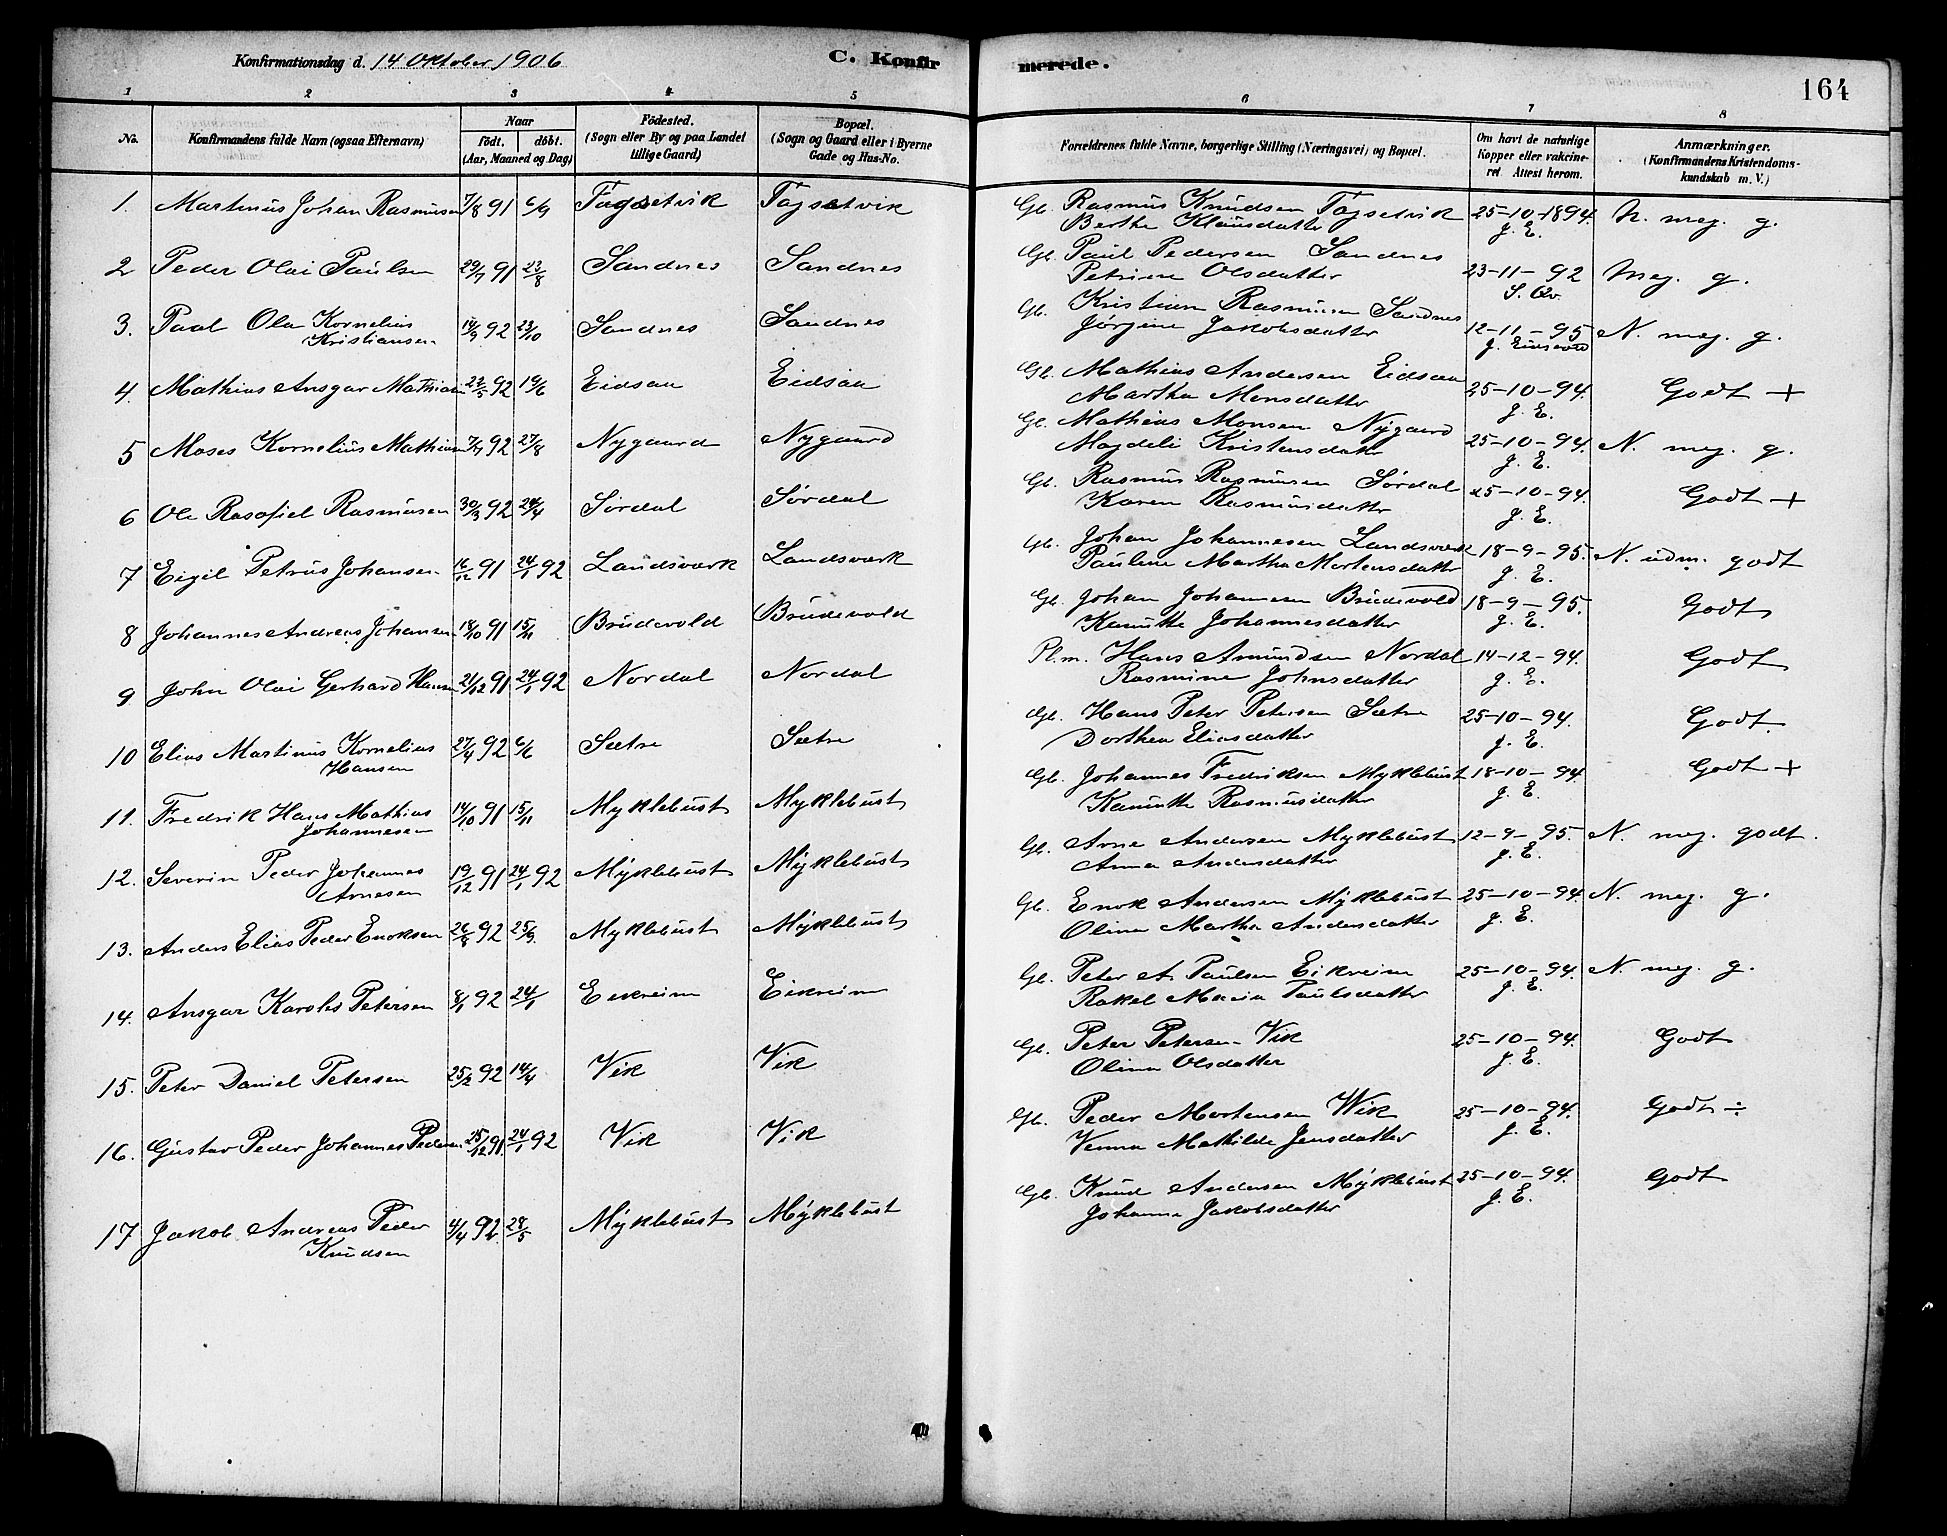 Konfirmationsdag d. 14 Oktober 1906
C. Konfirmerede.
164
1 2 3 4 5 6 7 8
No.
Konfirmandens fulde Navn (ogsaa Efternavn)
Naar
födt. döbt.
(Aar, Maaned og Dag)
Födested.
(Sogn eller By og paa Landet
tillige Gaard)
Bopæl.
(Sogn og Gaard eller i Byerne
Gade og Hus-No.
Forældrenes fulde Navne, borgerlige Stilling (Næringsvei) og Bopæl.
Om havt de naturlige
Kopper eller vakcine-
ret Attest herom.
Anmærkninger.
(Konfirmandens Kristendoms-
kundskab m. V.)
1. Martinus Johan Rasmusen 7/8 91 6/9 Fagsetvik Fagsetvik Gb. Rasmus Knudsen Fagsetvik 25-10-1894. N. meg. g.
Berthe Klausdatter J. E.
2 Peder Olai Paulsen 29/7 91 23/8 Sandnes Sandnes Gb. Paul Pedersen Sandnes 23-11-92 Meg. g.
Petrine Olsdatter S. Qv.
3. Paal Ola Kornelius 14/9 92 23/10 Sandnes Sandnes Gb. Kristian Rasmusen Sandnes 12-11-95 N. meg. g.
Kristiansen Jørgine Jakobsdatter J. Eidsvold
4. Mathias Ansgar Mathiasen 22/5 92 19/6 Eidsaa Eidsaa Gb. Mathias Andersen Eidsaa 25-10-94. Godt +
Martha Monsdatter J. E.
5 Moses Kornelius Mathiasen 7/7 92 27/8 Nygaard Nygaard Gb. Mathias Monsen Nygaard 25-10-94. N. meg. g.
Magdeli Kristensdatter J. E.
6 Ole Rasafiel Rasmusen 30/3 92 24/4 Sørdal Sørdal Gb. Rasmus Rasmusen Sørdal 25-10-94. Godt +
Karen Rasmusdatter J. E.
7 Eigil Petrus Johansen 16/12 91 24/1 92 Landsværk Landsværk Gb. Johan Johannesen Landsværk 18-9-95. N. udm. godt
Pauline Martha Mortensdatter J. E.
8 Johannes Andreas Johansen 18/10 91 15/11 Brudevold Brudevold Gb. Johan Johannesen Brudevold 18-9-95. Godt
Kanutte Johannesdatter J. E.
9 John Olai Gerhard Hansen 21/12 91 24/1 92 Nordal Nordal Pl.m. Hans Amundsen Nordal 14-12-94. Godt
Rasmine Johnsdatter J. E.
10 Elias Martinus Kornelius 27/4 92 6/6 Sætre Sætre Gb. Hans Peter Petersen Sætre 25-10-94. Godt
Hansen Dorthea Eliasdatter J. E.
11. Fredrik Hans Mathias 14/10 91 15/11 Myklebust Myklebust Gb. Johannes Fredriksen Myklebust 18-10-94 Godt +
Johannesen Kanutte Rasmusdatter J. E.
12. Severin Peder Johannes 19/12 91 24/1 92 Myklebust Myklebust Gb. Arne Andersen Myklebust 12-9-95. N. meg. godt.
Arnesen Anna Andersdatter J. E.
13. Anders Elias Peder Enoksen 26/8 92 25/9 Myklebust Myklebust Gb. Enok Andersen Myklebust 25-10-94. N. meg. g.
Olina Martha Andersdatter J. E.
14. Ansgar Karolus Petersen 8/1 92 24/1 Eikreim Eikreim Gb. Peter A. Paulsen Eikreim 25-10-94. N. meg. g.
Rakel Maria Paulsdatter J. E.
15. Peter Daniel Petersen 25/2 92 14/4 Vik Vik Gb. Peter Petersen Vik 25-10-94. Godt
Olina Olsdatter J. E.
16. Gustav Peder Johannes Pedersen 25/12 91. 24/1 92 Vik Vik Gb. Peder Mortensen Wik 25-10-94. Godt ÷
Venna Mathilde Jensdatter J. E.
17 Jakob Andreas Peder 4/4 92. 28/5 Myklebust Myklebust Gb. Knud Andersen Myklebust 25-10-94. Godt
Knudsen Johanna Jakobsdatter J. E.